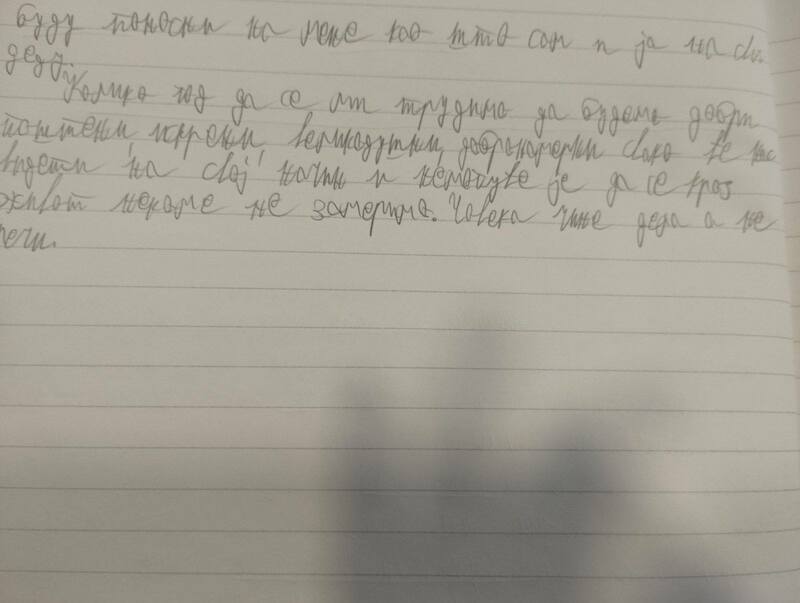 буду поносни на мене као што сам и ја на свог
деду.
Колико год да се ми трудимо да будемо добри
поштени, искрени, великодушни, добронамерни свако ће нас
видети на свој начин и немогуће је да се кроз
живот некоме не замеримо. Човека чине дела а не
речи.